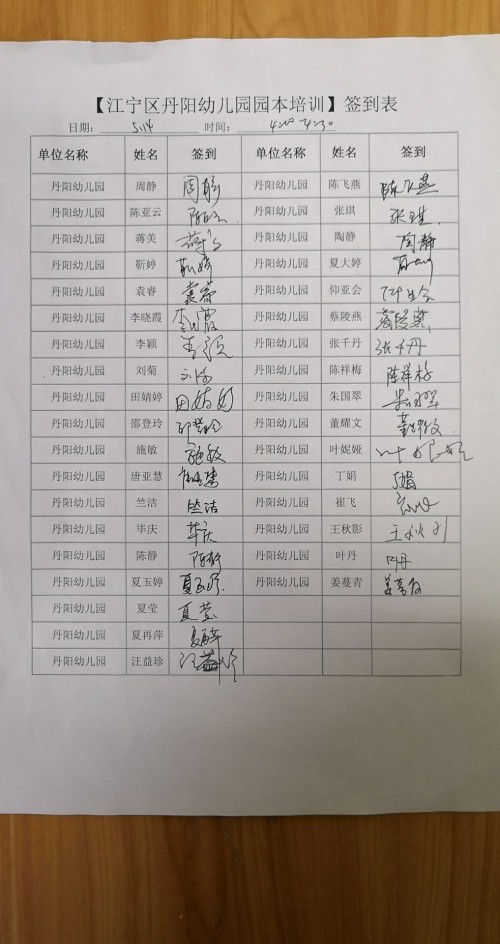 【江宁区丹阳幼儿园园本培训】签到表
日期： 5.14 时间：
单位名称 姓名 签到 单位名称 姓名 签到
丹阳幼儿园 周静 周静 丹阳幼儿园 陈飞燕 陈飞燕
丹阳幼儿园 陈亚云 丹阳幼儿园 张琪 张琪
丹阳幼儿园 蒋美 丹阳幼儿园 陶静 陶静
丹阳幼儿园 靳婷 靳婷 丹阳幼儿园 夏大婷
丹阳幼儿园 袁睿 袁睿 丹阳幼儿园 仰亚会
丹阳幼儿园 李晓霞 李晓霞 丹阳幼儿园 蔡陵燕 蔡陵燕
丹阳幼儿园 李颖 李颖 丹阳幼儿园 张千丹 张千丹
丹阳幼儿园 刘菊 丹阳幼儿园 陈祥梅 陈祥梅
丹阳幼儿园 田婧婷 田婧婷 丹阳幼儿园 朱国翠 朱国翠
丹阳幼儿园 邵登玲 邵登玲 丹阳幼儿园 董耀文 董耀文
丹阳幼儿园 施敏 施敏 丹阳幼儿园 叶妮娅 叶妮娅
丹阳幼儿园 唐亚慧 唐亚慧 丹阳幼儿园 丁娟 丁娟
丹阳幼儿园 竺洁 竺洁 丹阳幼儿园 崔飞
丹阳幼儿园 毕庆 毕庆 丹阳幼儿园 王秋影 王秋影
丹阳幼儿园 陈静 陈静 丹阳幼儿园 叶丹 叶丹
丹阳幼儿园 夏玉婷 夏玉婷 丹阳幼儿园 姜蔓青 姜蔓青
丹阳幼儿园 夏莹 夏莹
丹阳幼儿园 夏再萍 夏再萍
丹阳幼儿园 汪益珍 汪益珍